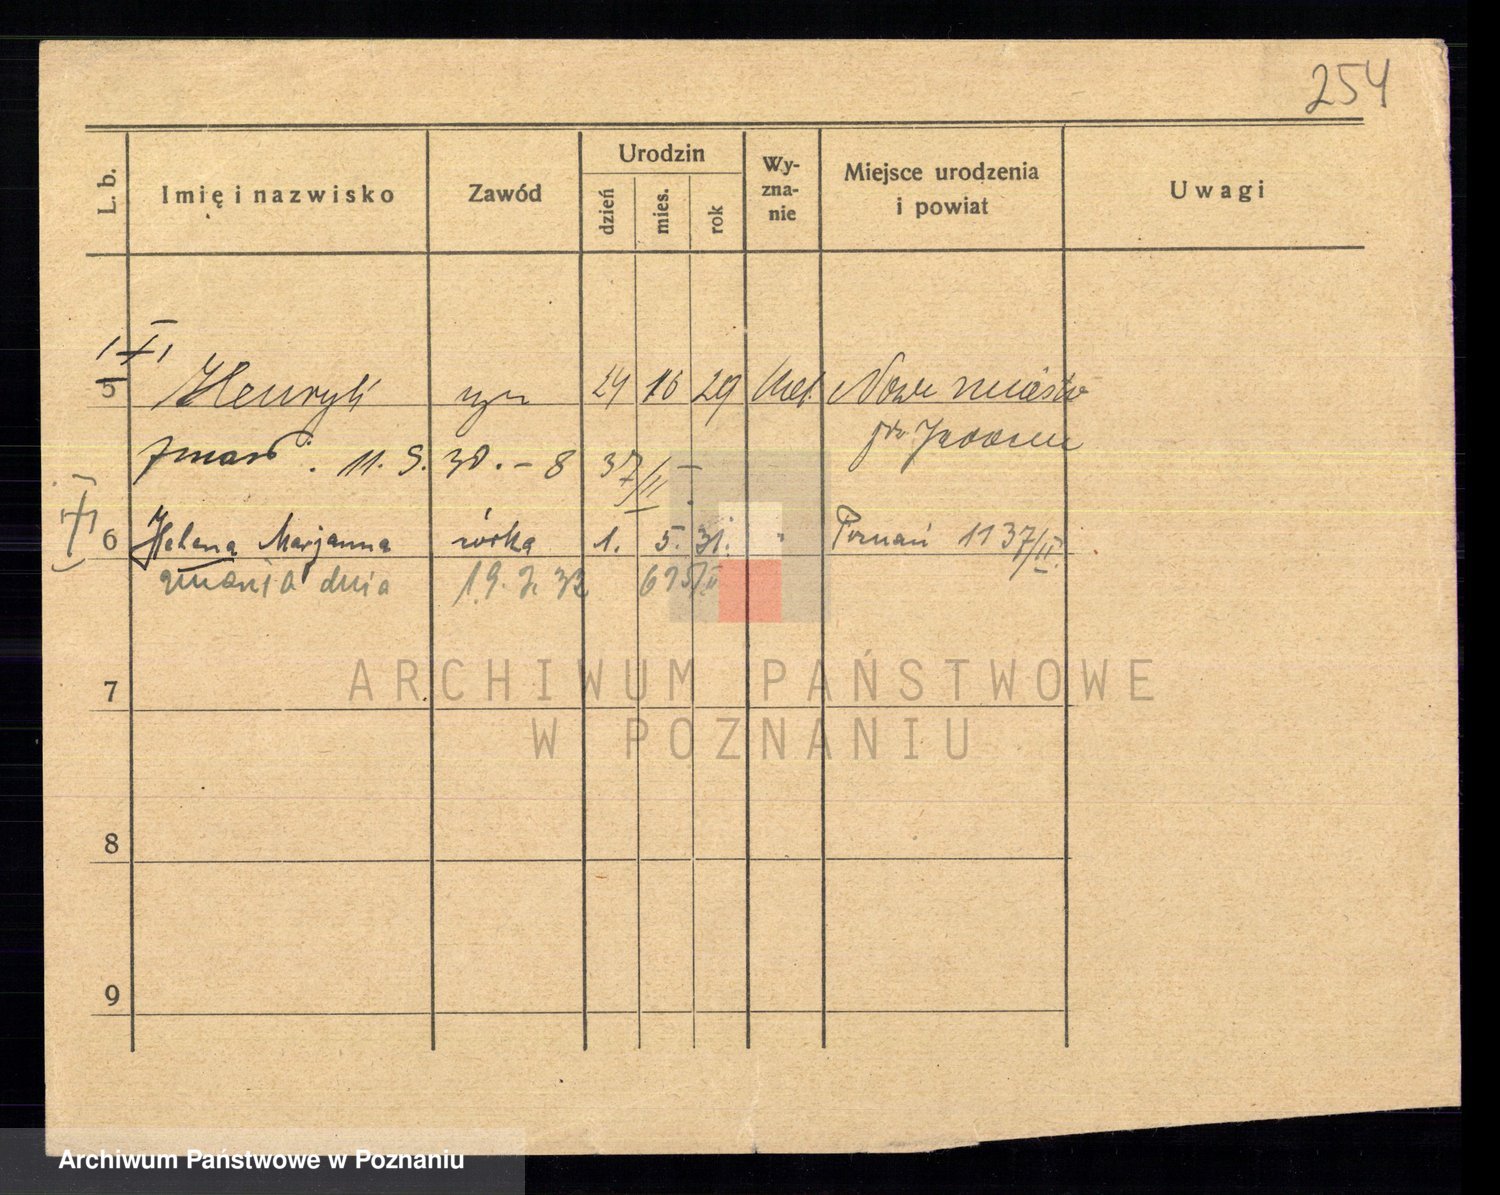 254
L. b. Imię i nazwisko Zawód Urodzin dzień mies. rok Wy-zna-nie Miejsce urodzenia i powiat Uwagi
5 Henryk syn 24 29 Nowe miasto
zmarł. 11. 9. 30. – 8 37/II
6 Helena Marjanna córka 1. 5. 31. " Poznań 1137/II.
zmarła dnia 19. 7. 32 695/II
7
ARCHIWUM PAŃSTWOWE
W POZNANIU
8
9
Archiwum Państwowe w Poznaniu